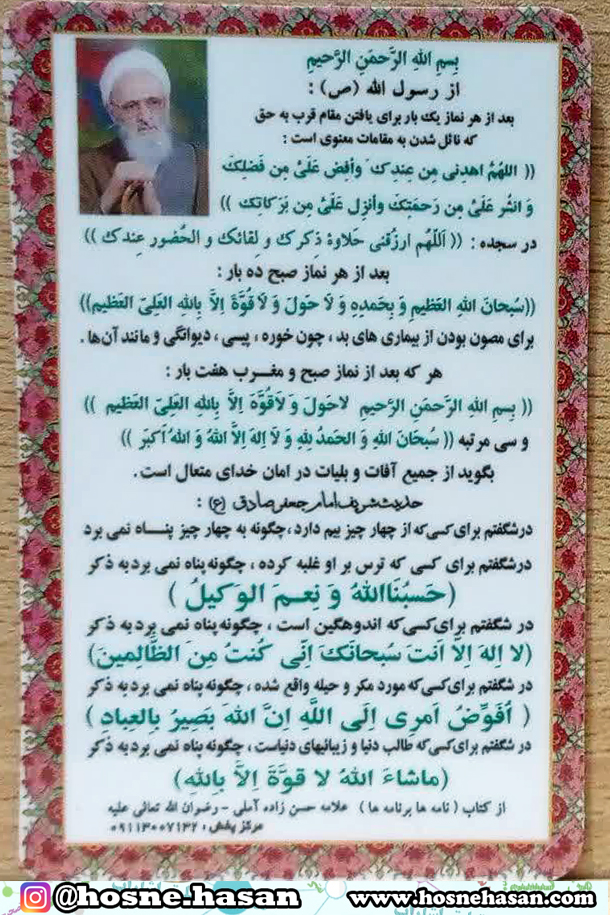 بِسمِ اللهِ الرَّحمَنِ الرَّحیمِ
از رسول الله (ص) :
بعد از هر نماز یک بار برای یافتن مقام قرب به حق
که نائل شدن به مقامات معنوی است :
(( اللهُمَّ اهدِنی مِن عِندِكَ وأفِض عَلَیَّ مِن فَضلِكَ
وَ انشُر عَلَیَّ مِن رَحمَتِكَ وأنزِل عَلَیَّ مِن بَرَكاتِكَ ))
در سجده : (( اَللّهُم ارزُقنی حَلاوةَ ذِكرِكَ وَ لِقائِكَ و الحُضور عِندِكَ ))
بعد از هر نماز صبح ده بار :
((سُبحانَ اللهِ العَظیمِ وَ بِحَمدِهِ وَ لا حَولَ وَ لا قُوَّةَ اِلاَّ بِاللهِ العَلِیّ العَظیمِ))
برای مصون بودن از بیماری های بد ، چون خوره ، پیسی ، دیوانگی و مانند آن‌ها .
هر که بعد از نماز صبح و مغرب هفت بار :
(( بِسمِ اللهِ الرَّحمَنِ الرَّحیمِ لاحَولَ وَ لاقُوَّةَ اِلاَّ بِاللهِ العَلِیّ العَظیمِ ))
و سی مرتبه (( سُبحَانَ اللهِ وَ الحَمدُ لِلهِ وَ لا اِلهَ اِلاَّ اللهُ وَ اللهُ اَكبَر ))
بگوید از جمیع آفات و بلیات در امان خدای متعال است .
حدیث شریف امام جعفر صادق (ع) :
در شگفتم برای کسی که از چهار چیز بیم دارد ، چگونه به چهار چیز پنـاه نمی برد
درشگفتم برای کسی که ترس بر او غلبه کرده ، چگونه پناه نمی برد به ذکر
(حَسبُنَااللهُ وَ نِعـمَ الوَکیلُ )
در شگفتم برای کسی که اندوهگین است ، چگونه پناه نمی برد به ذکر
(لا اِلهَ اِلاَّ اَنتَ سُبحانَكَ اِنّی کُنتُ مِنَ الظَّالِمینَ)
در شگفتم برای کسی که مورد مکر و حیله واقع شده ، چگونه پناه نمی برد به ذکر
( اُفَوِّضُ اَمرِی اِلَی اللَّهِ اِنَّ اللهَ بَصیرُ بِالعِبادِ )
در شگفتم برای کسی که طالب دنیا و زیبائیهای دنیاست ، چگونه پناه نمی برد به ذکر
(ماشاءَ اللهُ لا قوَّةَ اِلاَّ بِاللهِ)
از کتاب ( نامه ها برنامه ها ) علامه حسن زاده آملی - رضوان الله تعالی علیه
مرکز پخش : ۰۹۱۱۳۰۰۷۱۳۲
@hosne.hasan www.hosnehasan.com